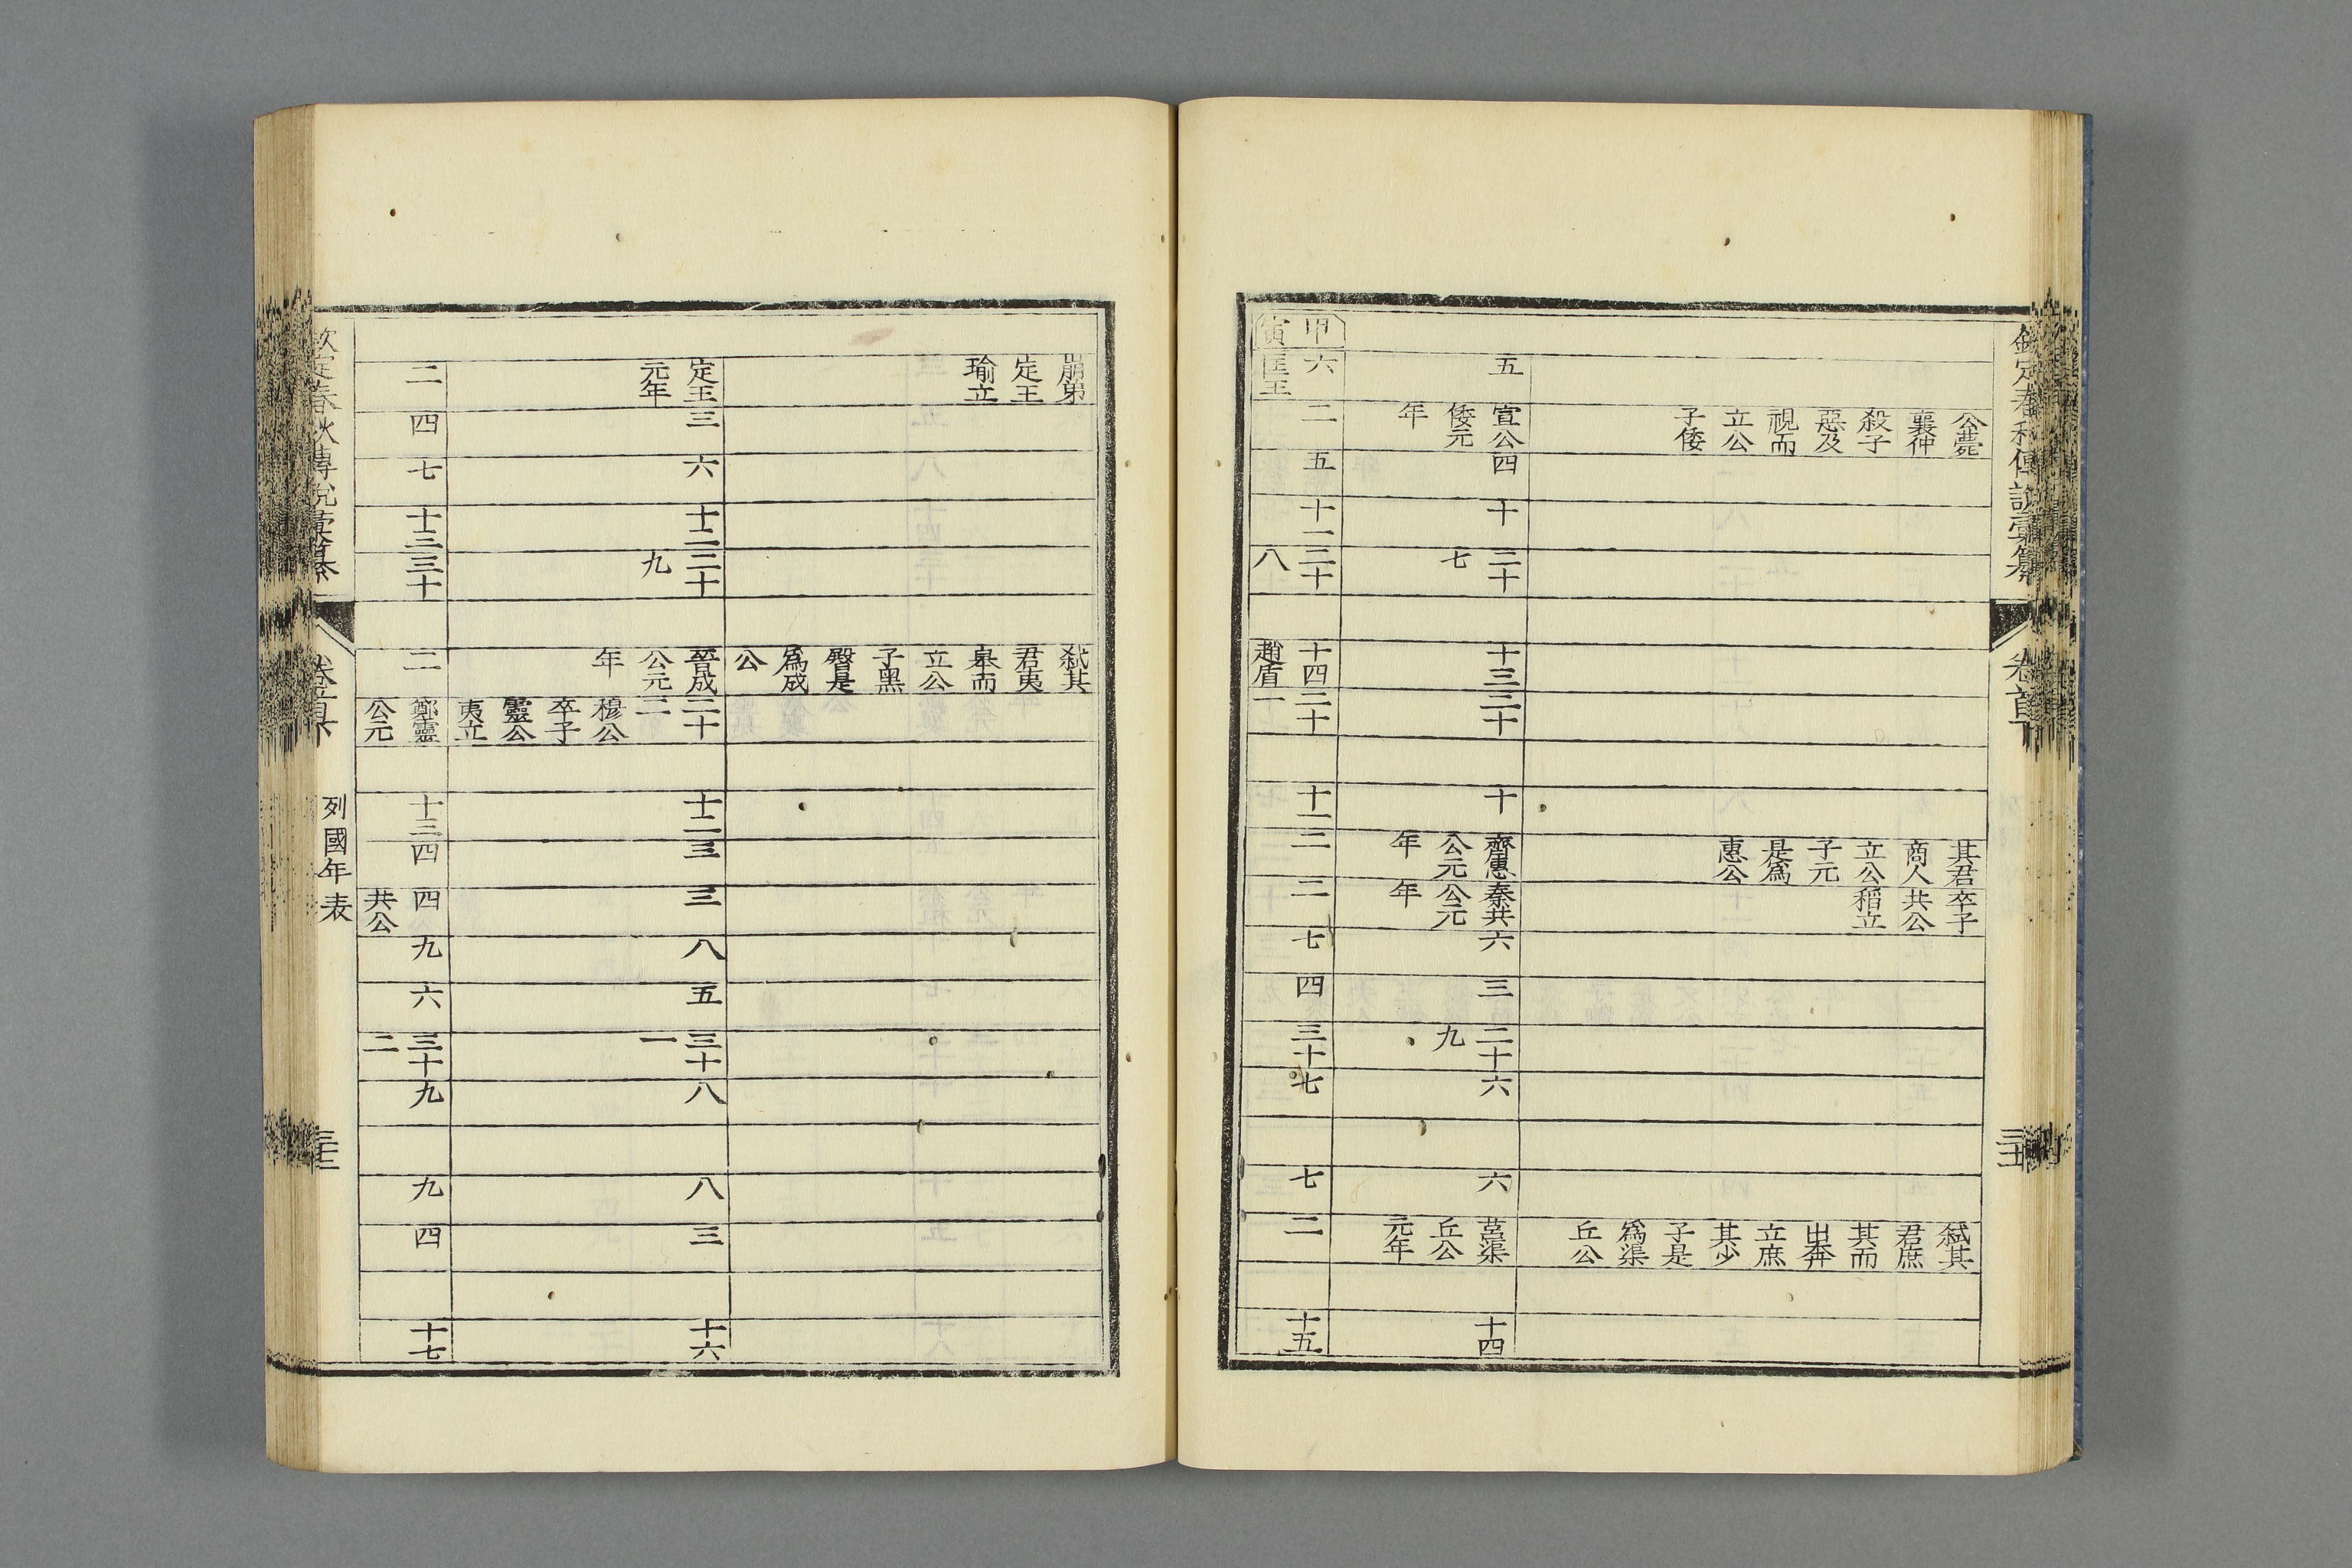 欽定春秋傳說彙纂 卷首下
公薨 其君 卒子 弒其
襄仲 商人 共公 君庶
殺子 立公 稻立 其而
惡及 子元 出奔
視而 是爲 立庶
立公 惠公 其少
子倭 子是
爲渠
丘公
五 宣公 四 十 二十 十三 二十 十 齊惠 秦共 六 三 二十 六 六 莒渠 十四
倭元 七 公元 公元 九 丘公
年 年 年 元年
甲 六 二 五 十一 二十 十四 二十 十一 二 二 七 四 三十 七 七 二 十五
寅 匡王 八 趙盾 一
崩弟 弒其
定王 君夷
瑜立 臯而
立公
子黑
臀是
爲成
公
定王 三 六 十二 二十 晉成 二十 十二 三 三 八 五 三十 八 八 三 十六
元年 九 公元 二 一
年 穆公
卒子
靈公
夷立
二 四 七 十三 三十 二 鄭靈 十三 四 四 九 六 三十 九 九 四 十七
公元 共公 二
欽定春秋傳說彙纂 卷首下 列國年表